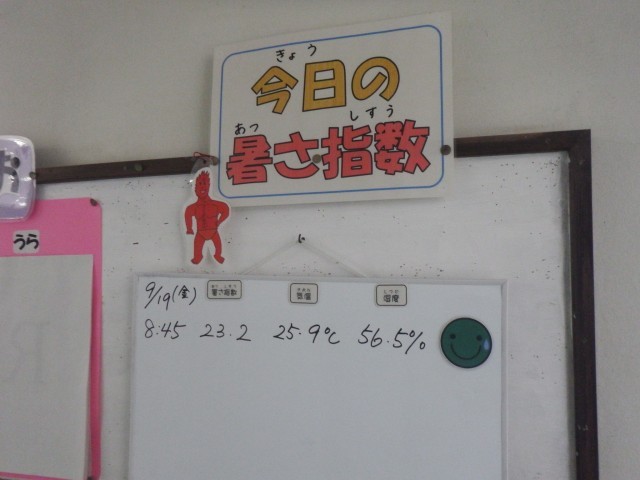 きょう
今日の
あつ しすう
暑さ指数
うら
9/19(金) 暑さ指数 気温 湿度
8:45 23.2 25.9℃ 56.5%